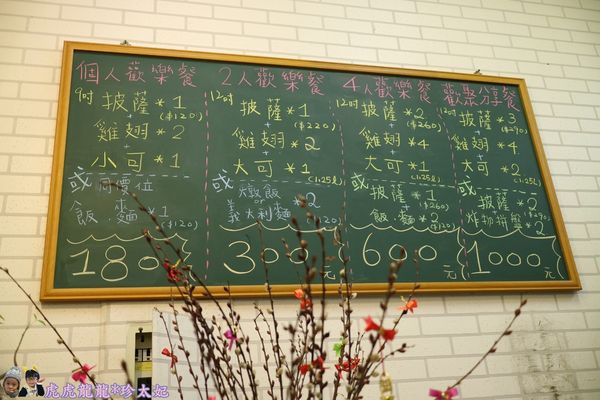 個人歡樂餐
9吋 披薩*1
($120)
+
雞翅*2
+
小可*1
或 同價位
飯.麵*1
($120)
180
2人歡樂餐
12吋 披薩*1
($220)
+
雞翅*2
+
大可*1
(1.25L)
或 燉飯 or 義大利麵 *2
300元
4人歡樂餐
12吋 披薩*2
($260)
+
雞翅*4
+
大可*1
(1.25L)
或 披薩*1
($260)
飯.麵*2
($120)
600元
歡聚分享餐
12吋 披薩*3
($290)
+
雞翅*4
+
大可*2
(1.25L)
或 披薩*2
($290)
炸物拼盤*2
1000元
虎虎龍龍&珍太妃